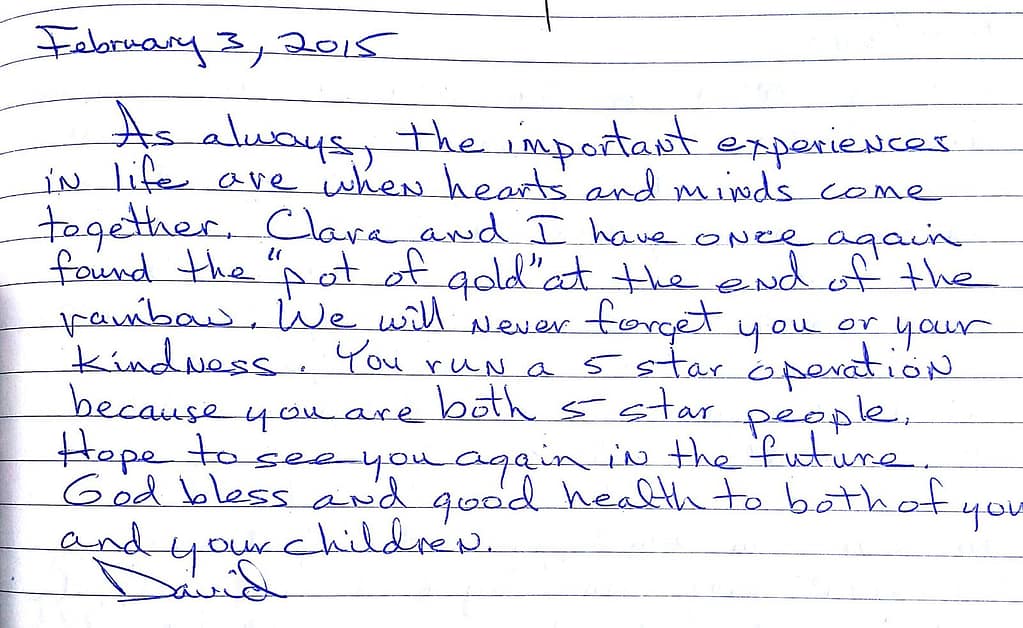 February 3, 2015
As always, the important experiences
in life are when hearts and minds come
together. Clara and I have once again
found the "pot of gold" at the end of the
rainbow. We will never forget you or your
kindness. You run a 5 star operation
because you are both 5 star people.
Hope to see you again in the future.
God bless and good health to both of you
and your children.
David